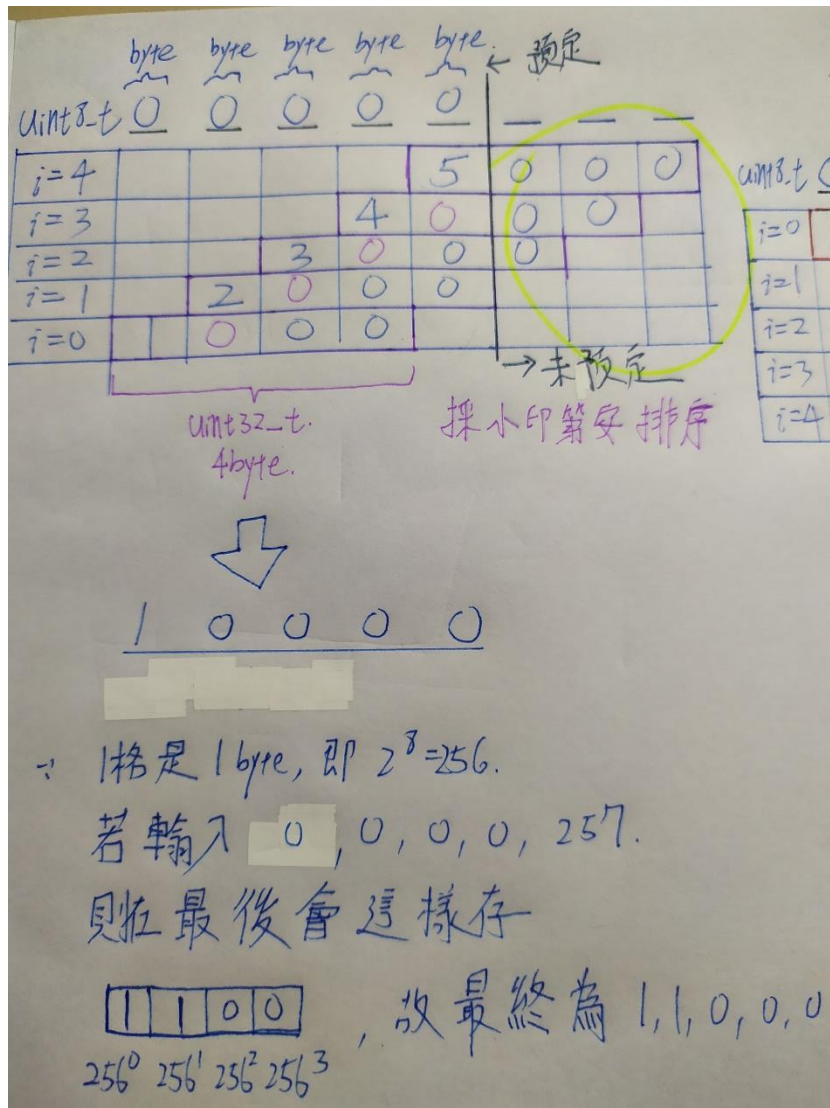 byte byte byte byte byte
← 預定
uint8_t 0 0 0 0 0
i=4 5 0 0 0
i=3 4 0 0 0
i=2 3 0 0 0
i=1 2 0 0 0
i=0 0 0 0
→未預定
uint32_t.
4byte.
採小印第安排序
uint8_t
i=0
i=1
i=2
i=3
i=4
1 0 0 0 0
∵ 1格是1byte, 即 2⁸=256.
若輸入 0, 0, 0, 0, 257.
則在最後會這樣存
1 1 0 0, 故最終為 1,1,0,0,0
256⁰ 256¹ 256² 256³